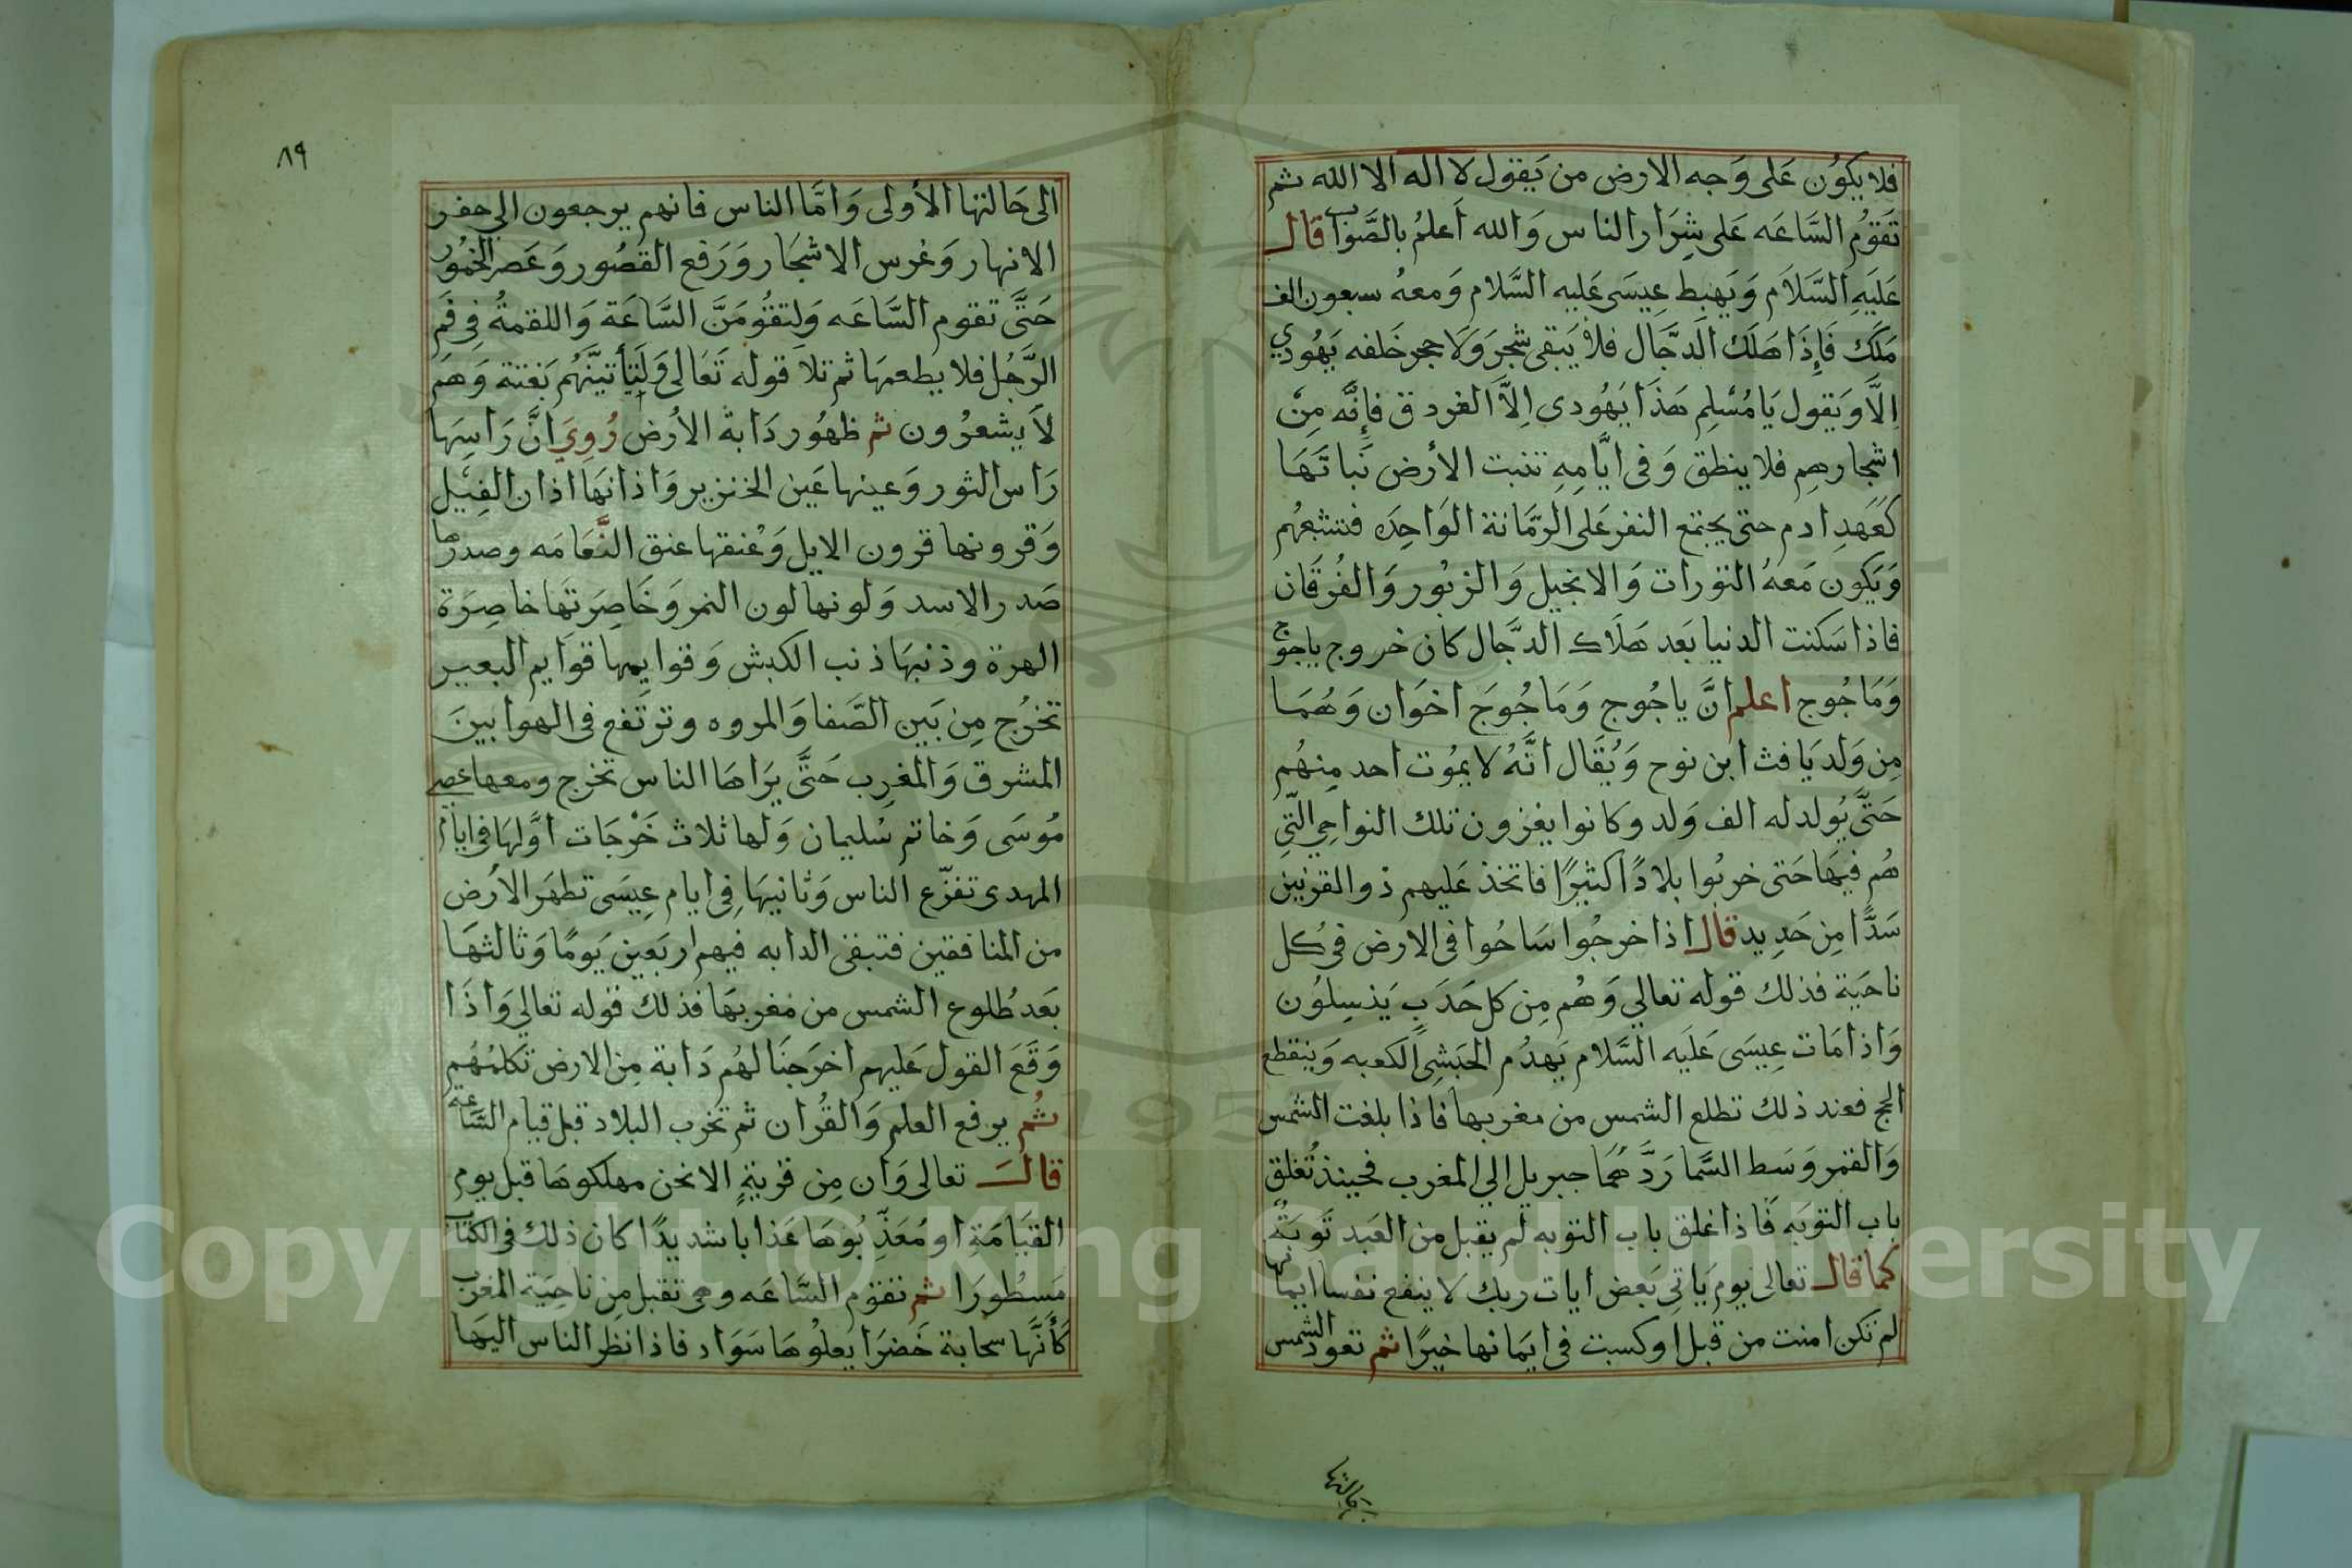 فلا يكوُن عَلى وَجه الارض من يَقول لا اله الا الله ثم
تَقوُم السَّاعَه عَلى شِرَار الناس وَالله اَعلمُ بالصَّوَاب قال
عَليَهِ السَّلاَم وَيَهبِط عِيسَى عَليه السَّلام وَمعهُ سبعون الف
مَلَك فَإِذَا هَلَك الدَّجَّال فلا يَبقى شجر وَلا حجر خَلفه يَهُودي
اِلاَّ وَيقول يَا مُسْلِم هَذَا يَهُودى اِلاَّ الغردق فإِنَّه مِن
اشجارهِم فلا ينطق وَفى ايَّامِهِ تنبت الأرض نَباتَهَا
كَعَهدِ ادم حتى يجتمع النفر عَلى الرمَّانة الوَاحِدَه فتشبعهُم
وَيَكون مَعهُ التورات وَالانجيل وَالزبُور وَالفُرقَان
فاذا سَكنت الدنيا بَعد هَلَاك الدجَّال كان خروج ياجوج
وَمَاجُوج اعلم انَّ ياجُوج وَمَاجُوجَ اخوَان وَهُمَا
مِن وَلد يَافث ابن نوح وَيُقَال انَّهُ لا يموُت احد مِنهُم
حَتَّى يُولد له الف وَلد وكانوا يغزون تلك النواحِي التي
هُم فيهَا حَتى خربُوا بلادًا كثيرًا فاتخذ عَليهم ذو القرنين
سَدًّا مِن حَدِيد قال اذا خرجُوا سَاحُوا فى الارض في كل
ناحَيَة فذلك قوله تعالي وَهُم مِن كل حَدَبٍ يَنسِلوُن
وَاذا مَات عِيسَى عَلَيه السَّلام يَهدُم الحبَشِى الكعبه وَينقطع
الحج فعند ذلك تطلع الشمس من مغربها فاذا بلغت الشمس
وَالقمر وَسَط السَّما رَدَّ هُمَا جبريل الي المغرب فحينئذ تُغلق
باب التوبَه فَاذا غلق باب التوبه لم يقبل من العَبد تَوبَتهُ
كما قال تعالى يومَ يَاتى بَعض ايات ربك لا ينفع نفسا ايمانها
لم تكن امنت من قبل اوكسبت فى ايمَانها خيرًا ثم تعود الشمس
الى حَالتها
٨٩
الى حَالتها الأولى وَامَّا الناس فانهم يرجعون الي حفر
الانهار وَغرس الاشجَار وَرَفع القصُور وَعَصر الخمُور
حَتَّى تقوم السَّاعَه وَلتقُومَنَّ السَّاعَة وَاللقمةُ فِى فَم
الرَّجُل فلا يطعمهَا ثم تلاَ قوله تَعَالى وَلَتأتينَّهُم بَغتة وَهم
لاَ يشعرُون ثم ظهُور دَابة الأرض رُوِيَ انَّ رَاسِهَا
رَاس الثور وَعينها عَين الخنزير وَاذانهَا اذان الفِيْل
وَقرونها قرون الايل وَعْنقها عنق النَّعَامَه وصدرها
صَدر الاسد وَلونها لون النمر وَخَاصِرَتهَا خاصِرَة
الهرة وذنبهَا ذنب الكبش وَقوايمها قوَايم البعير
تخرُج مِن بَين الصَّفا وَالمروه وترتَفع فى الهوا بينَ
المشرق وَالمغرِب حَتَّى يَرَاهَا الناس تخرج ومعها عصى
مُوسَى وَخاتم سُليمان وَلها ثلاث خَرْجَات اوَّلهَا فى ايام
المهدى تفزّع الناس وَثانيهَا فِى ايام عِيسَى تطهَر الأرض
من المنافقين فتبقى الدابه فيهم اربَعين يَومًا وَثالثهَا
بَعد طُلوع الشمس من مغربهَا فذلك قوله تعالي وَاذَا
وَقَعَ القول عَليهم اخرَجنَا لهُم دَابة مِن الارض تكلمُهُم
ثُم يرفع العلم وَالقُران ثم تخرب البلاد قبل قيام السَّاعة
قال تعالى وَان مِن قرَيةٍ الا نحن مهلكوهَا قبل يوم
القيَامَةِ او مُعَذّبُوهَا عَذابا شديدًا كان ذلك فى الكتاب
مَسطُورَا ثم تقوم السَّاعَه وهى تقبل مِن ناحيَة المغرب
كَأَنَّها سحابة خَضرَا يَعلوْهَا سَوَاد فاذا نظر الناس اليهَا
Copyright © King Saud University